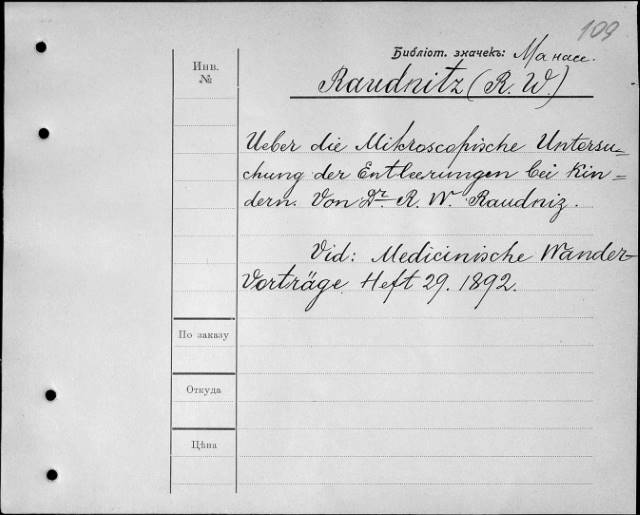 109
Библіот. значекъ: Манасс.
Инв.
№
Raudnitz (R. W.)
Ueber die Mikroscopische Untersu-
chung der Entleerungen bei Kin-
dern. Von Dr. R. W. Raudniz.
Vid: Medicinische Wander-
Vorträge. Heft 29. 1892.
По заказу
Откуда
Цѣна